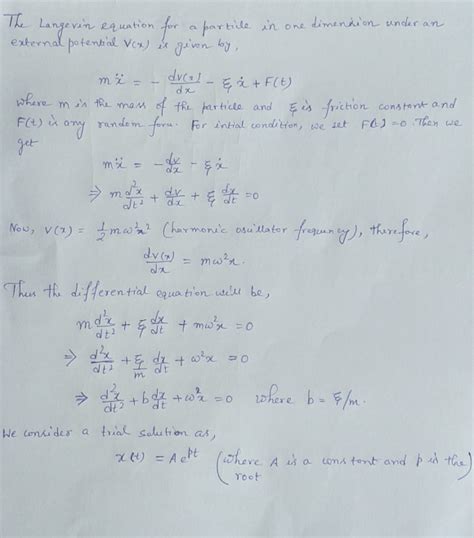 The Langevin equation for a particle in one dimension under an
external potential V(x) is given by,
m ẍ = - dV(x)/dx - ξ ẋ + F(t)
where m is the mass of the particle and ξ is friction constant and
F(t) is any random force. For intial condition, we set F(t) = 0. Then we
get
m ẍ = - dv/dx - ξ ẋ
⇒ m d²x/dt² + dv/dx + ξ dx/dt = 0
Now, V(x) = 1/2 mω²x² (harmonic oscillator frequency), therefore,
dV(x)/dx = mω²x.
Thus the differential equation will be,
m d²x/dt² + ξ dx/dt + mω²x = 0
⇒ d²x/dt² + ξ/m dx/dt + ω²x = 0
⇒ d²x/dt² + b dx/dt + ω²x = 0 where b = ξ/m.
We consider a trial solution as,
x(t) = A e^{pt} (where A is a constant and p is the
root)